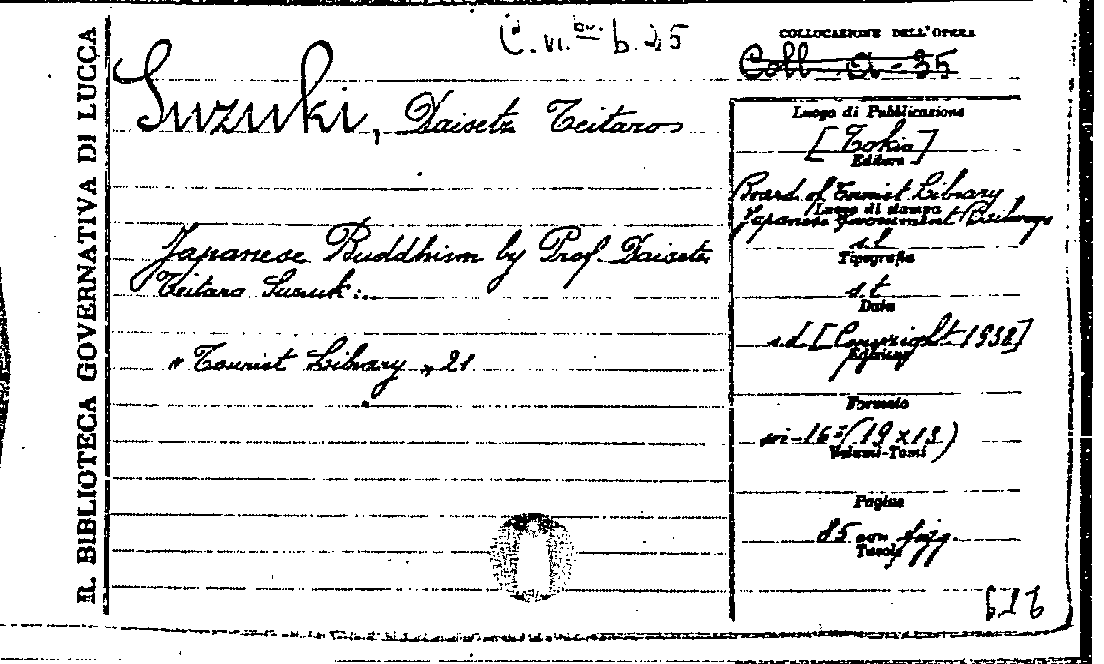 R. BIBLIOTECA GOVERNATIVA DI LUCCA
C. vi. b. 25
COLLOCAZIONE DELL'OPERA
Coll. a-35
Suzuki, Daisetz Teitaro
Japanese Buddhism by Prof. Daisetz
Teitaro Suzuki.
"Tourist Library" 21
Luogo di Pubblicazione
[Tokio]
Editore
Board of Tourist Library
Japanese Government Railways
Luogo di stampa
s.l
Tipografia
s.t
Data
s.d [Copyright 1938]
Formato
in-16° (19x13)
Volumi-Tomi
Pagine
85 con figg.
Tavole